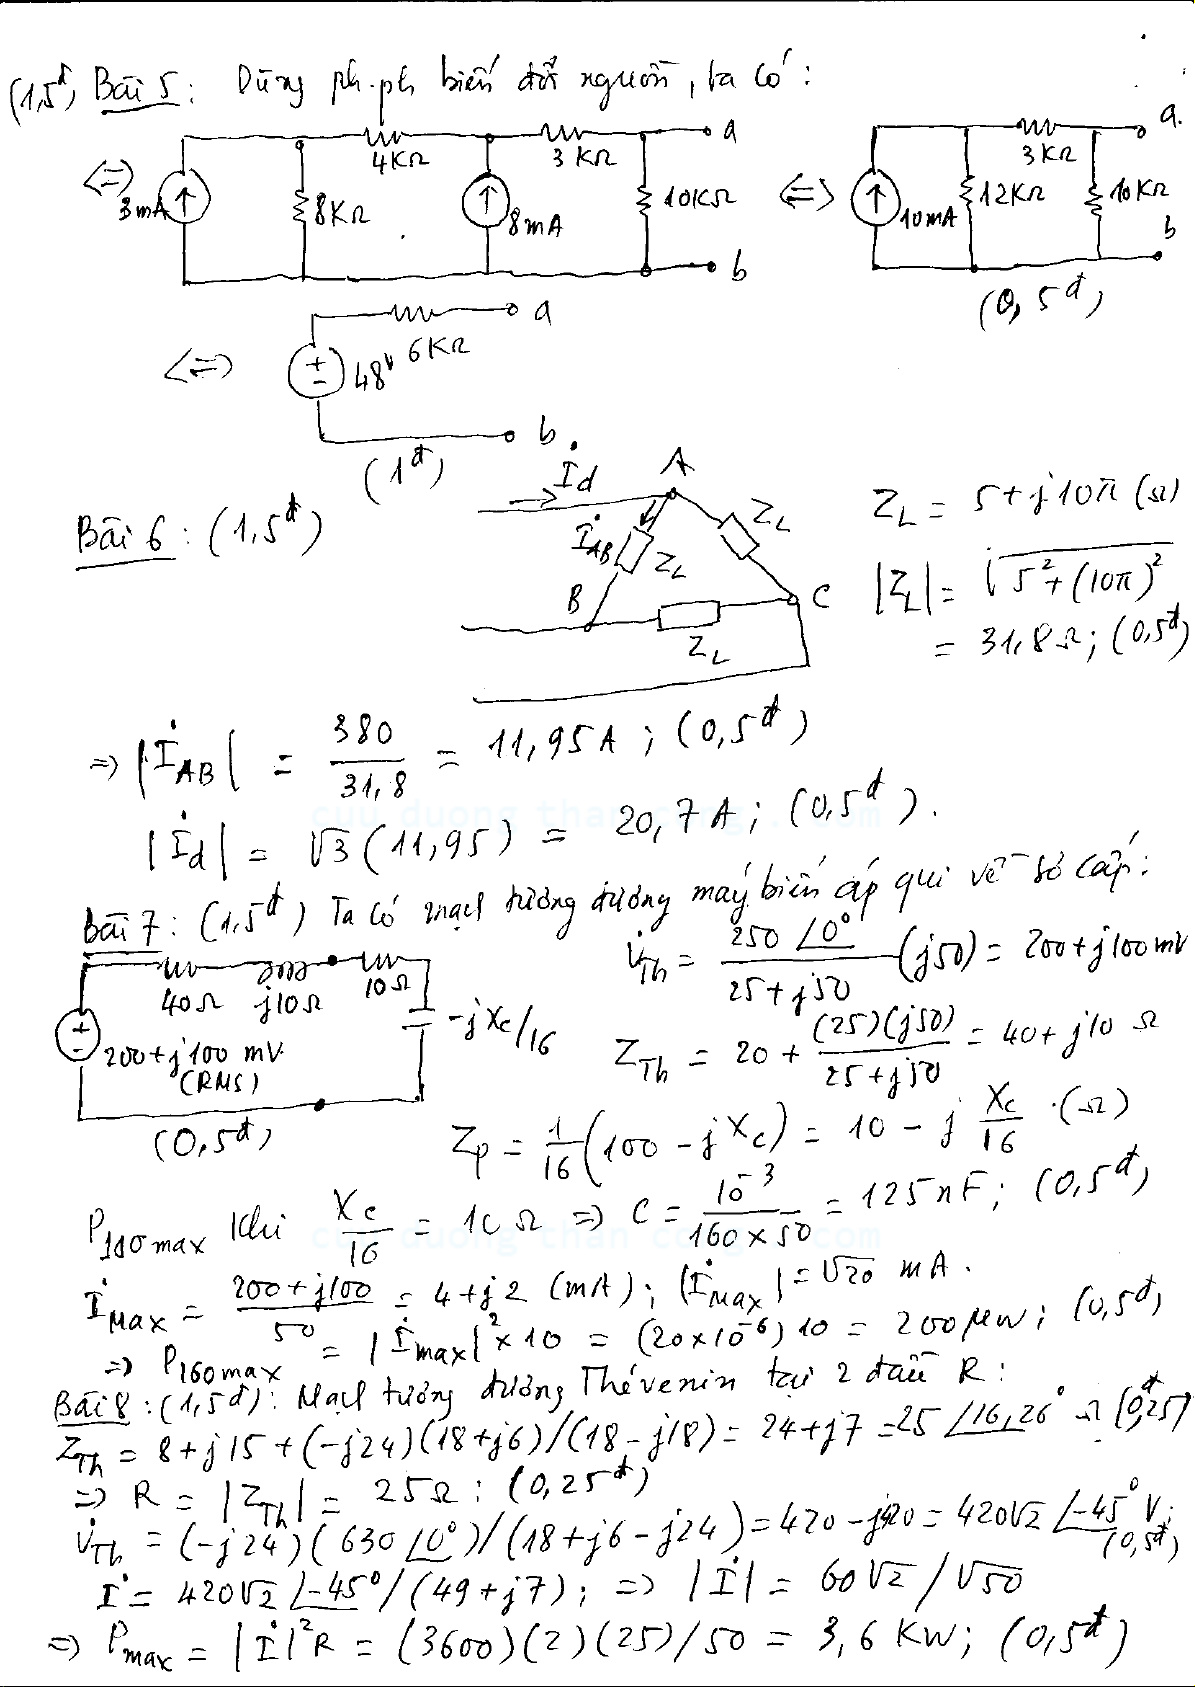 (1,5đ) Bài 5: Dùng ph.ph biến đổi nguồn, ta có:
⇔ 3mA 8KΩ 4KΩ 8mA 3KΩ 10KΩ a b ⇔ 10mA 12KΩ 3KΩ 10KΩ a. b
(0,5đ)
⇔ 48V 6KΩ a b
(1đ)
Bài 6: (1,5đ)
İd A İAB ZL ZL B ZL C
ZL = 5 + j10π (Ω)
|ZL| = √5² + (10π)²
= 31,8Ω; (0,5đ)
⇒ |İAB| = 380/31,8 = 11,95A; (0,5đ)
cuu duong than cong . com
|İd| = √3 (11,95) = 20,7A; (0,5đ).
Bài 7: (1,5đ) Ta có mạch tương đương máy biến áp qui về sơ cấp:
40Ω j10Ω 10Ω -jXc/16
200+j100 mV.
(RMS)
(0,5đ)
V̇Th = 250∠0°/25+j50 (j50) = 200+j100mV
ZTh = 20 + (25)(j50)/25+j50 = 40+j10 Ω
Zp = 1/16 (100 - jXc) = 10 - j Xc/16 .(Ω)
P160max khi Xc/16 = 10Ω ⇒ C = 10⁻³/160×50 = 125nF; (0,5đ)
cuu duong than cong . com
İMax = 200+j100/50 = 4+j2 (mA); |İMax| = √20 mA.
⇒ P160max = |İmax|² × 10 = (20×10⁻⁶)10 = 200μW; (0,5đ)
Bài 8: (1,5đ): Mạch tương đương Thévenin tại 2 đầu R:
ZTh = 8+j15 + (-j24)(18+j6)/(18-j18) = 24+j7 = 25∠16,26° Ω (0,25đ)
⇒ R = |ZTh| = 25Ω: (0,25đ)
V̇Th = (-j24)(630∠0°)/(18+j6-j24) = 420-j420 = 420√2∠-45° V;
(0,5đ)
İ = 420√2∠-45°/(49+j7); ⇒ |İ| = 60√2/√50
⇒ Pmax = |İ|²R = (3600)(2)(25)/50 = 3,6 KW; (0,5đ)